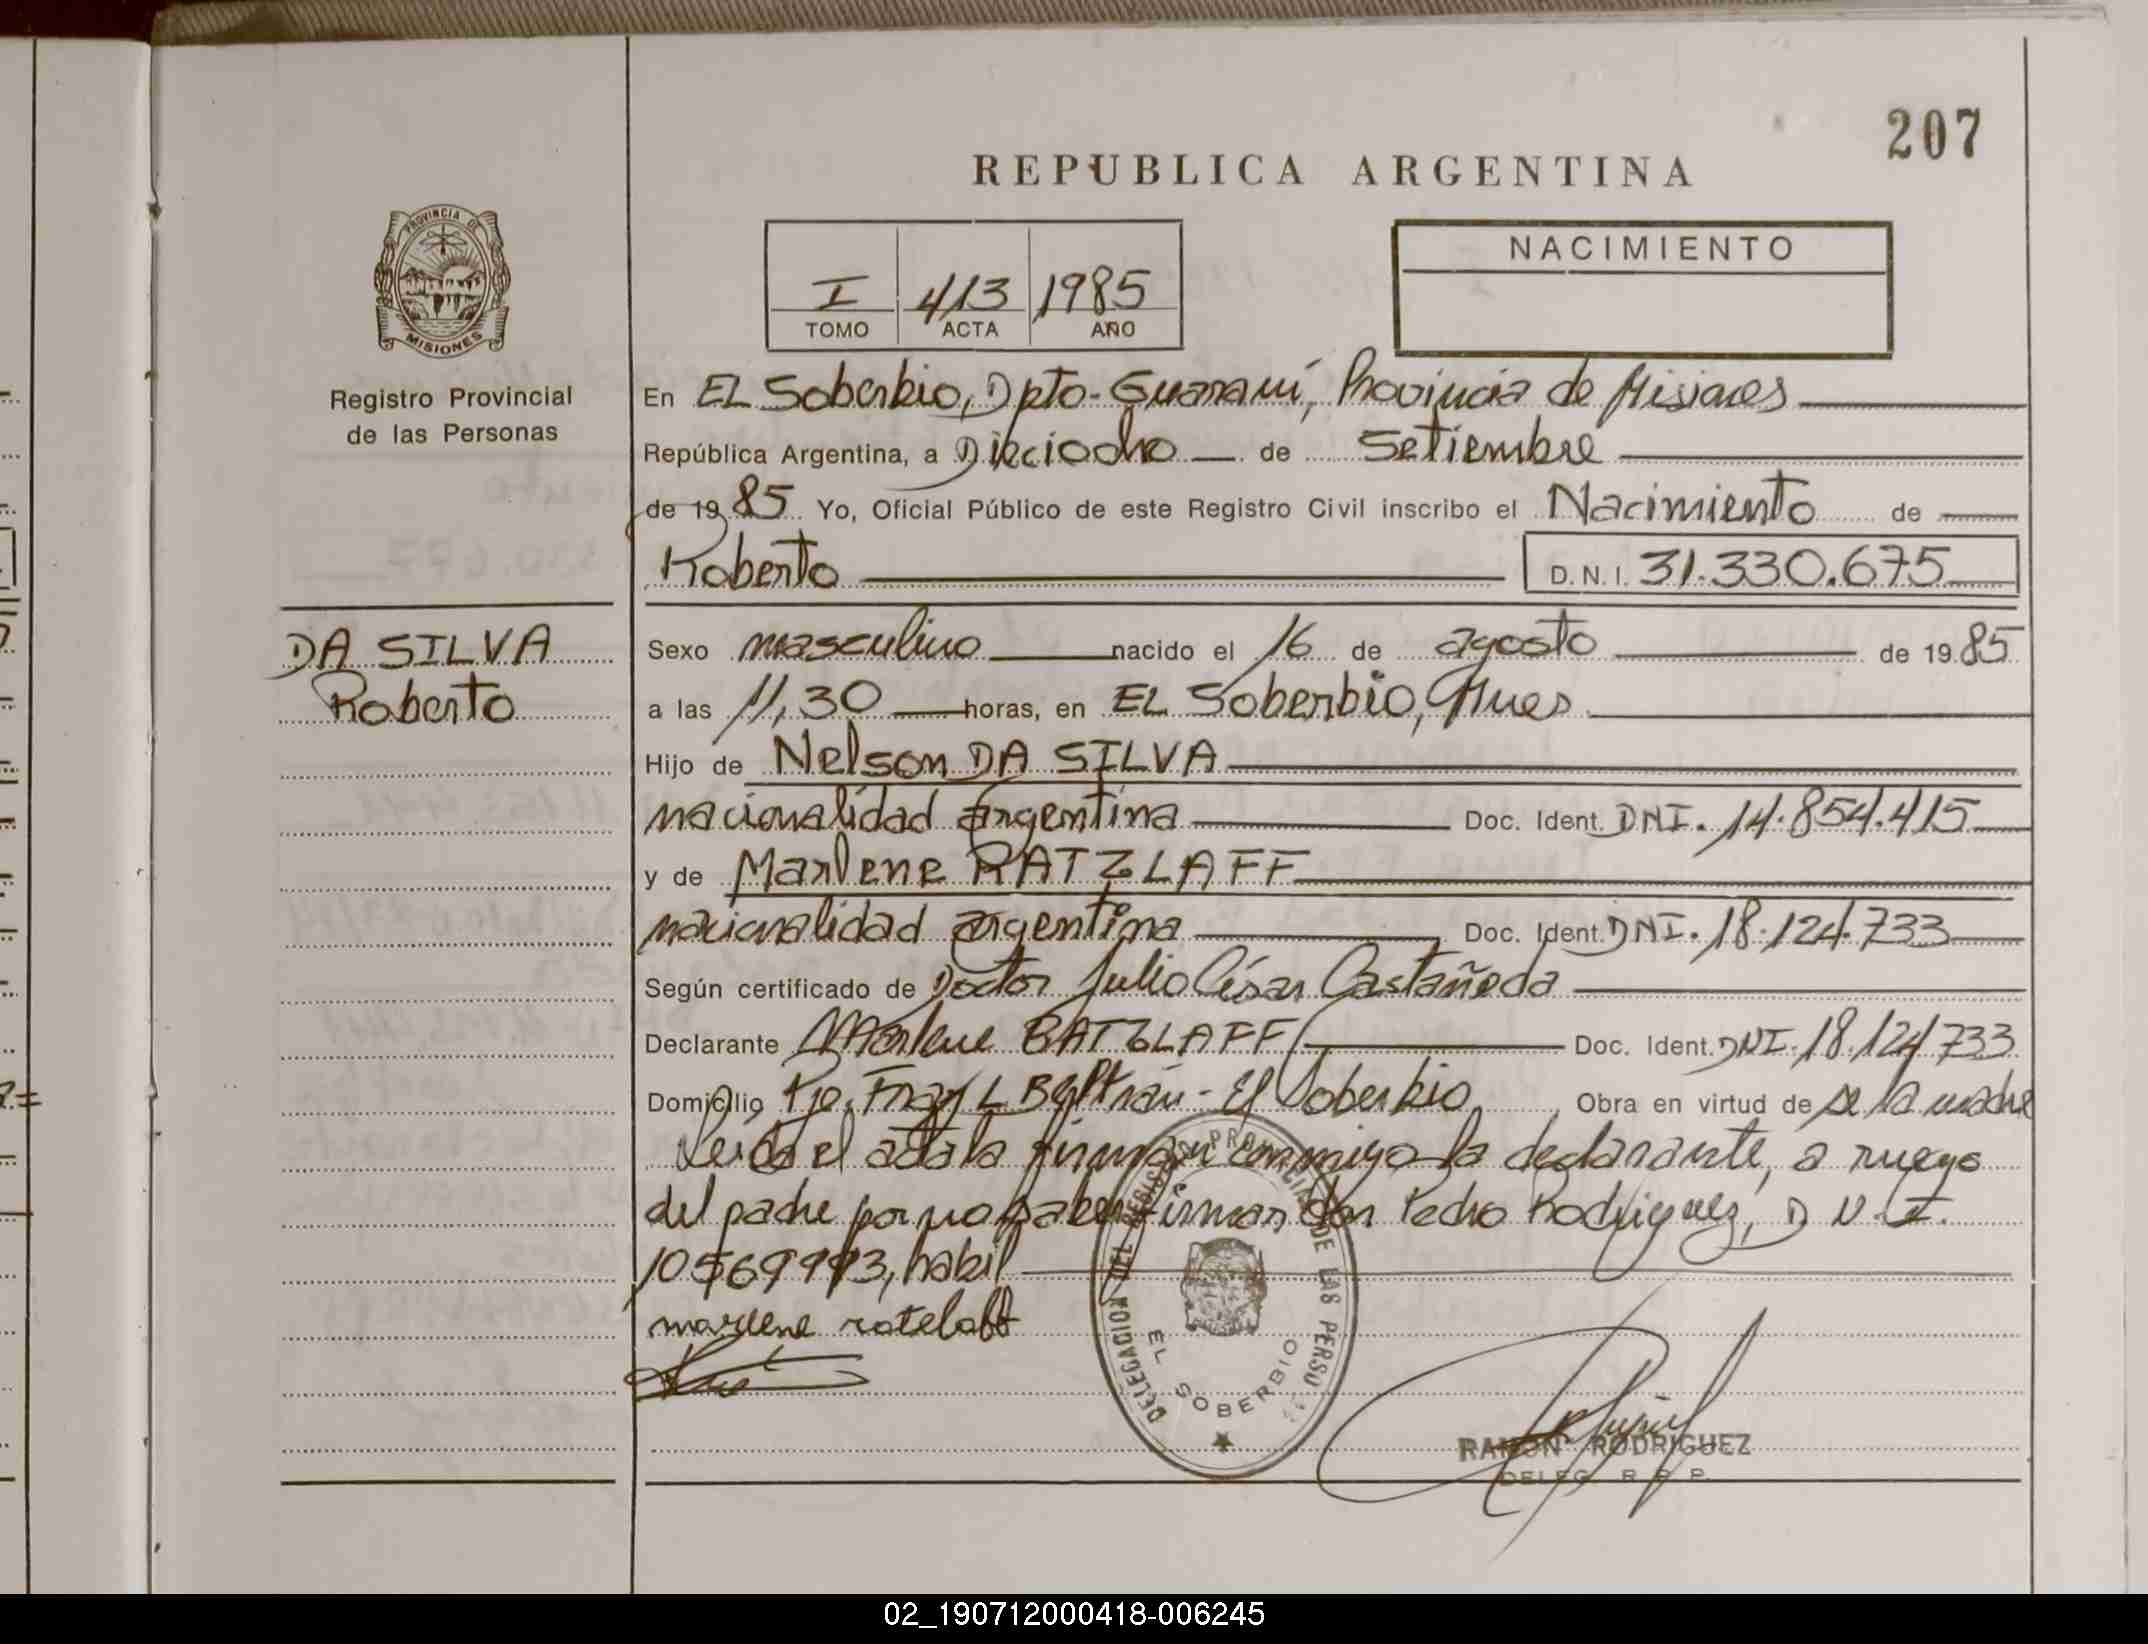 207
REPUBLICA ARGENTINA
PROVINCIA DE
MISIONES
Registro Provincial
de las Personas
I 413 1985
TOMO ACTA AÑO
NACIMIENTO
En EL Soberbio, Dpto-Guaraní, Provincia de Misiones
República Argentina, a Dieciocho de Setiembre
de 1985 Yo, Oficial Público de este Registro Civil inscribo el Nacimiento de
Roberto D.N.I. 31.330.675
DA SILVA
Roberto
Sexo masculino nacido el 16 de agosto de 1985
a las 11,30 horas, en EL Soberbio, Mnes
Hijo de Nelson DA SILVA
nacionalidad argentina Doc. Ident. DNI. 14.854.415
y de Marlene RATZLAFF
nacionalidad argentina Doc. Ident. DNI. 18.124.733
Según certificado de Doctor Julio César Castañeda
Declarante Marlene RATZLAFF Doc. Ident. DNI. 18.124733
Domicilio Pje. Fray L Beltrán - El Soberbio Obra en virtud de de la madre
Leída el acta la firman conmigo la declarante, a ruego
del padre por no saber firmar don Pedro Rodriguez, D N.I.
10569993, habil
marlene ratslaff
DELEGACION DEL REGISTRO PROVINCIAL DE LAS PERSO
EL SOBERBIO
RAMON RODRIGUEZ
DELEG. R. P. P.
02_190712000418-006245